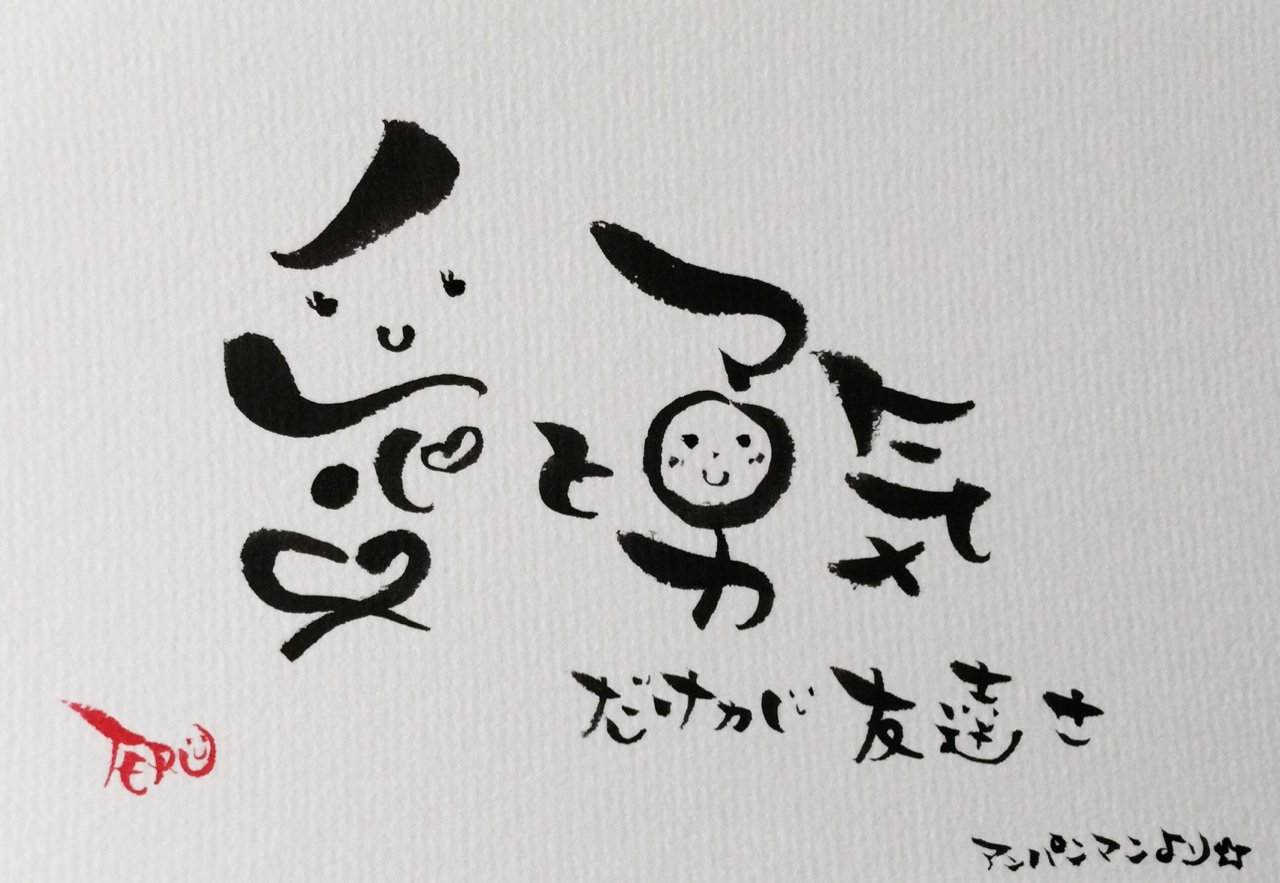 愛と勇気
だけが友達さ
アンパンマンより☆
TERU